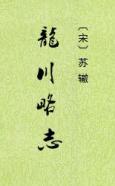 〔宋〕苏辙
龍川略志